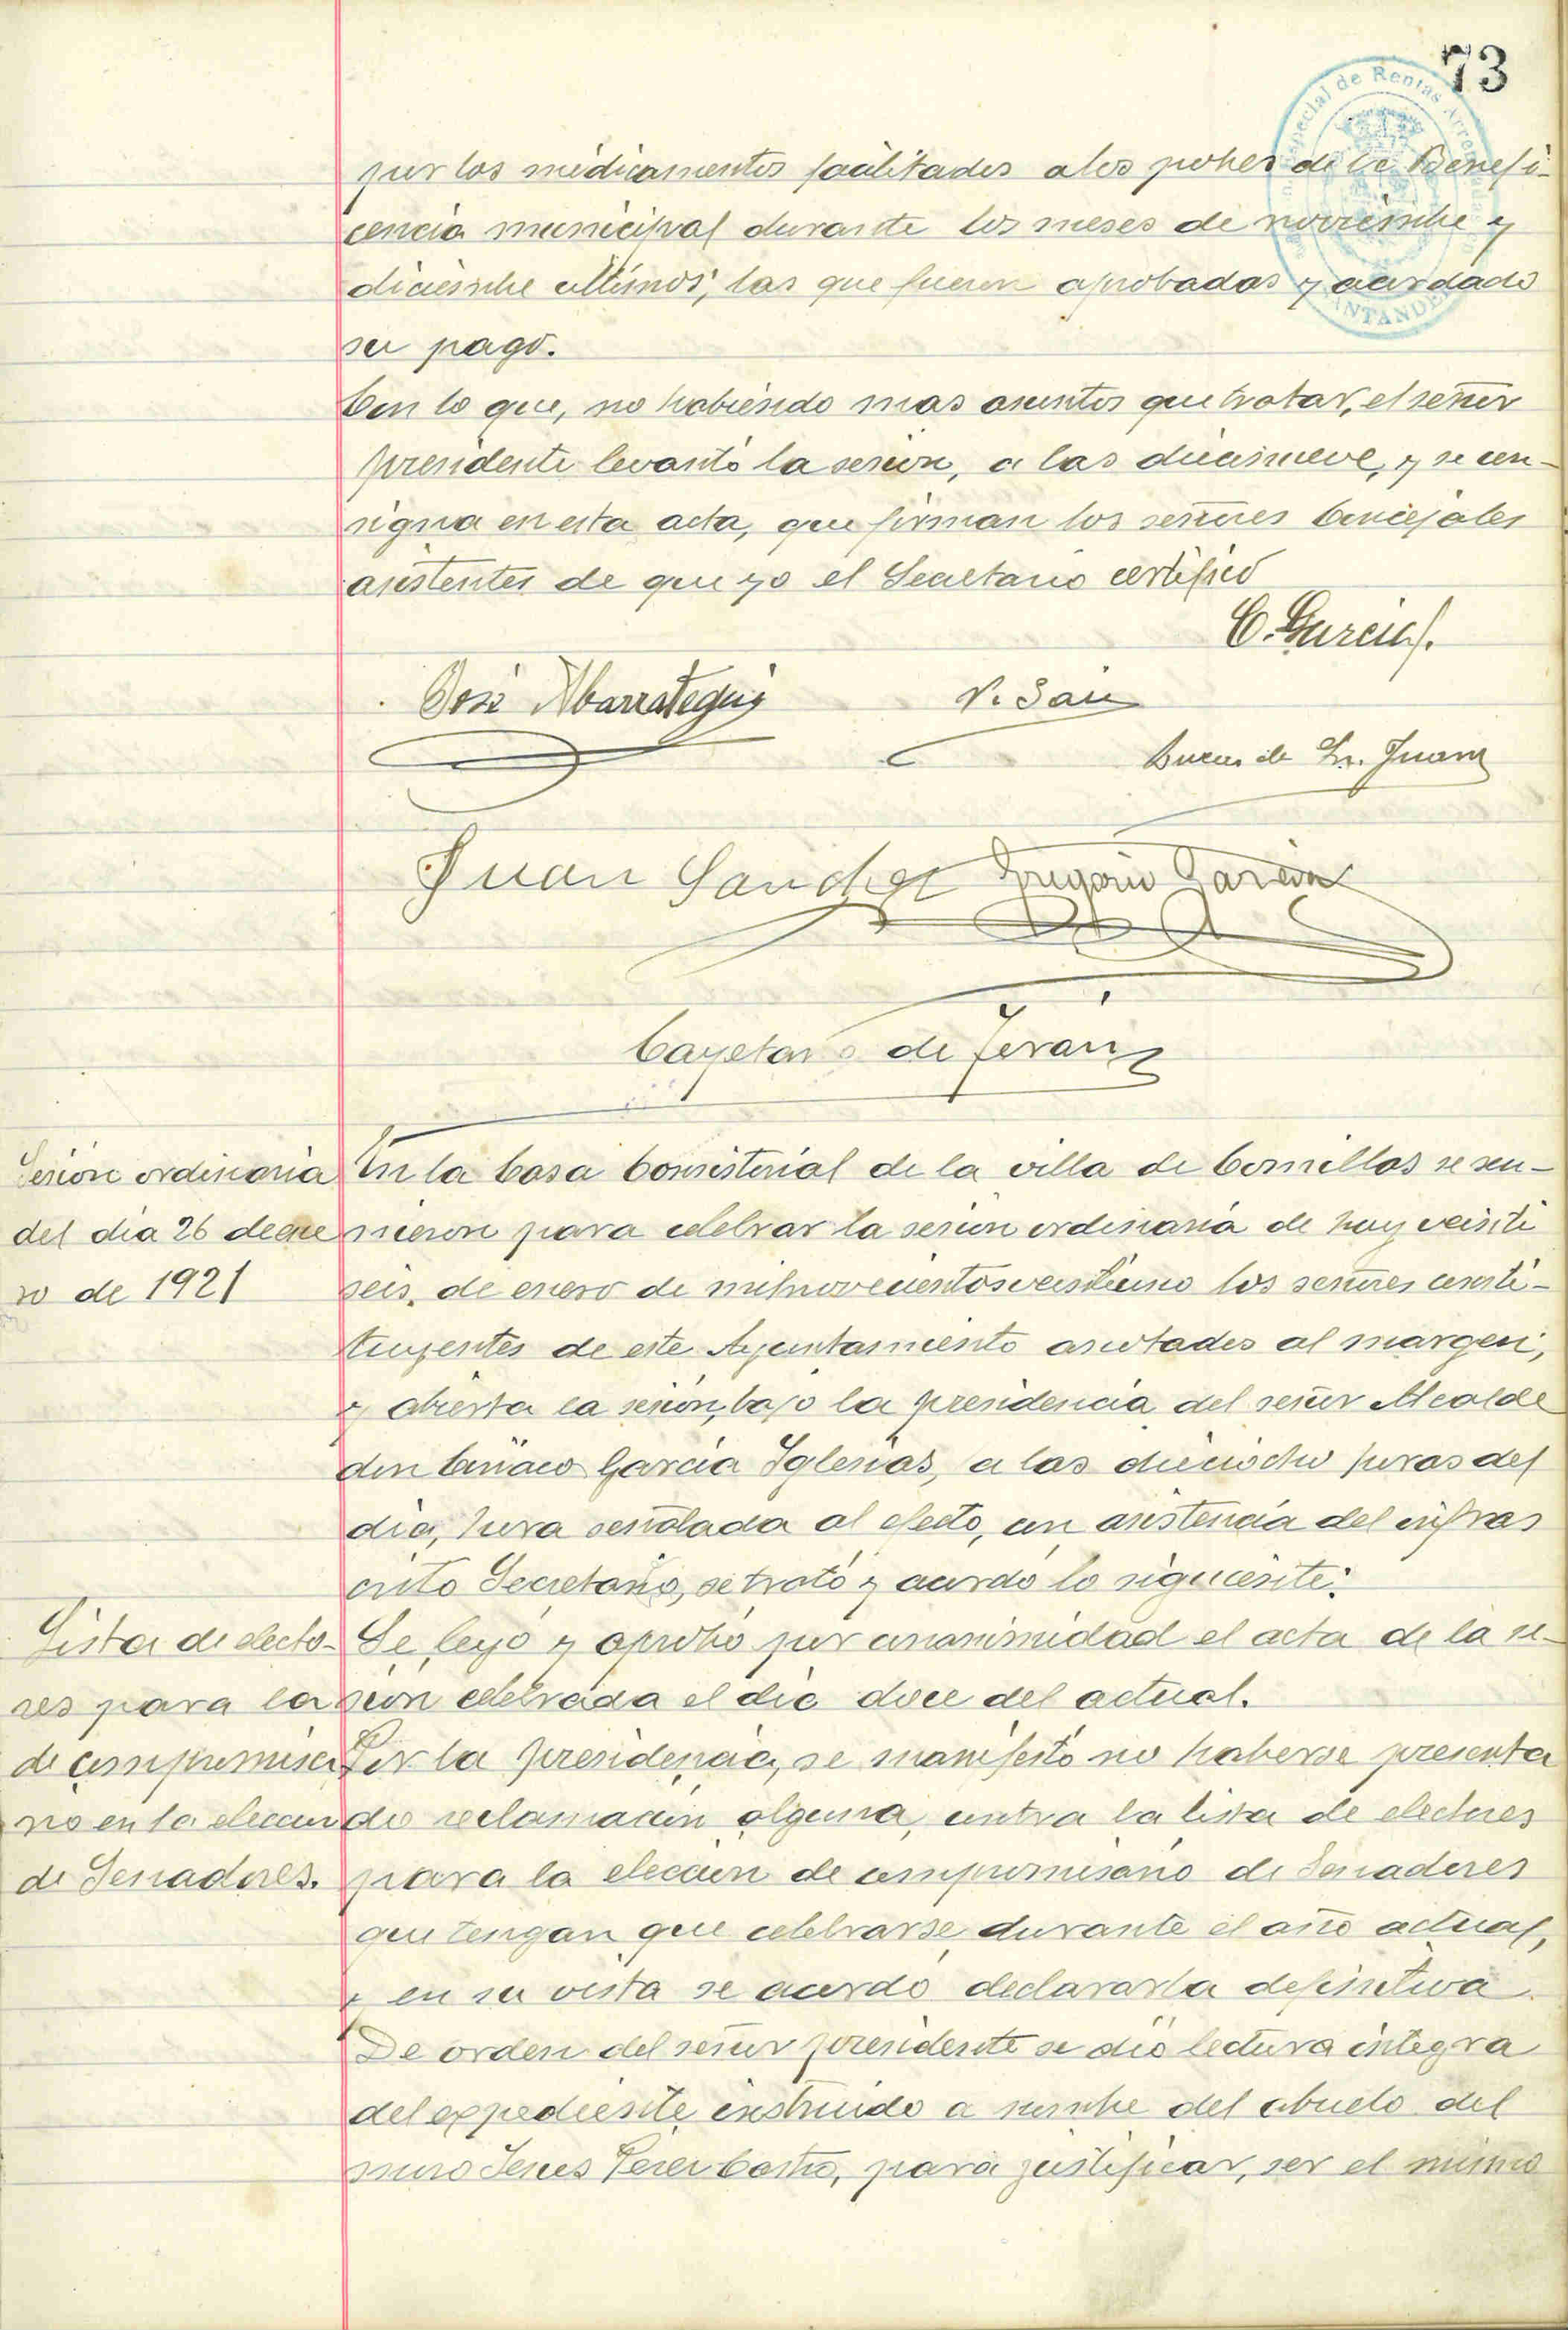 73
por los medicamentos facilitados a los pobres de la Benefi-
cencia municipal durante los meses de noviembre y
diciembre últimos, las que fueron aprobadas y acordado
su pago.
Con lo que, no habiendo mas asuntos que tratar, el señor
presidente levantó la sesión, a las diecinueve, y se con-
signa en esta acta, que firman los señores Concejales
asistentes de que yo el Secretario certifico
C. Garcia
José Abarrategui
V. Sai
de Sn. Juan
Juan Sanchez Gregorio Garcia
Cayetano de Terán
Sesión ordinaria
del dia 26 de ene
ro de 1921
En la Casa Consistorial de la villa de Comillas se reu-
nieron para celebrar la sesión ordinaria de hoy veinti
seis de enero de milnovecientosveintiuno los señores consti-
tuyentes de este Ayuntamiento anotados al margen,
y abierta la sesión, bajo la presidencia del señor Alcalde
don Ciriaco García Iglesias, a las dieciocho horas del
día, hora señalada al efecto, con asistencia del infras
crito Secretario, se trató y acordó lo siguiente:
Lista de electo-
res para la
de compromisa
rio en la elección
de Senadores.
Se leyó y aprobó por unanimidad el acta de la se-
sión celebrada el dia doce del actual.
Por la presidencia, se manifestó no haberse presenta
do reclamación alguna, contra la lista de electores
para la elección de compromisario de Senadores
que tengan que celebrarse durante el año actual,
y en su vista se acordó declararla definitiva.
De orden del señor presidente se dió lectura integra
del expediente instruido a nombre del abuelo del
mozo Jesus Perez Castro, para justificar, ser el mismo